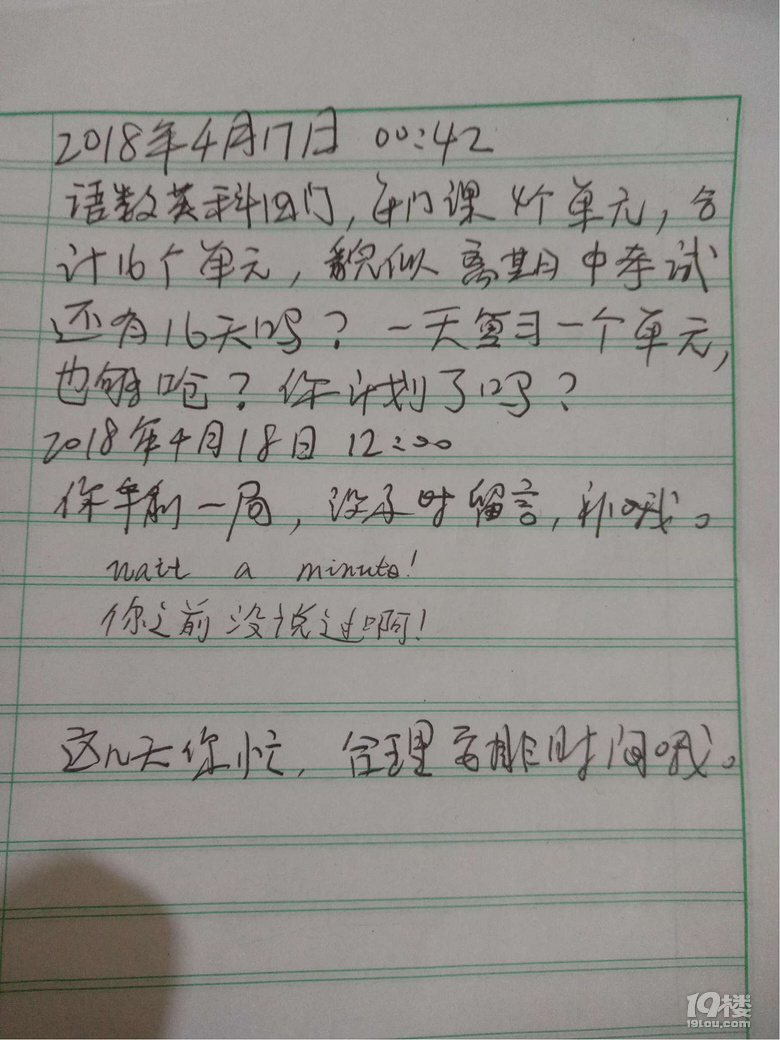 2018年4月17日 00:42
语数英科四门,每门课4个单元,合
计16个单元,貌似离期中考试
还有16天吗?一天复习一个单元,
也够呛?你计划了吗?
2018年4月18日 12:00
你 一局,没 时留言, 哦。
wait a minute!
你之前没说过啊!
这几天你忙,合理安排时间哦。
19楼
19lou.com